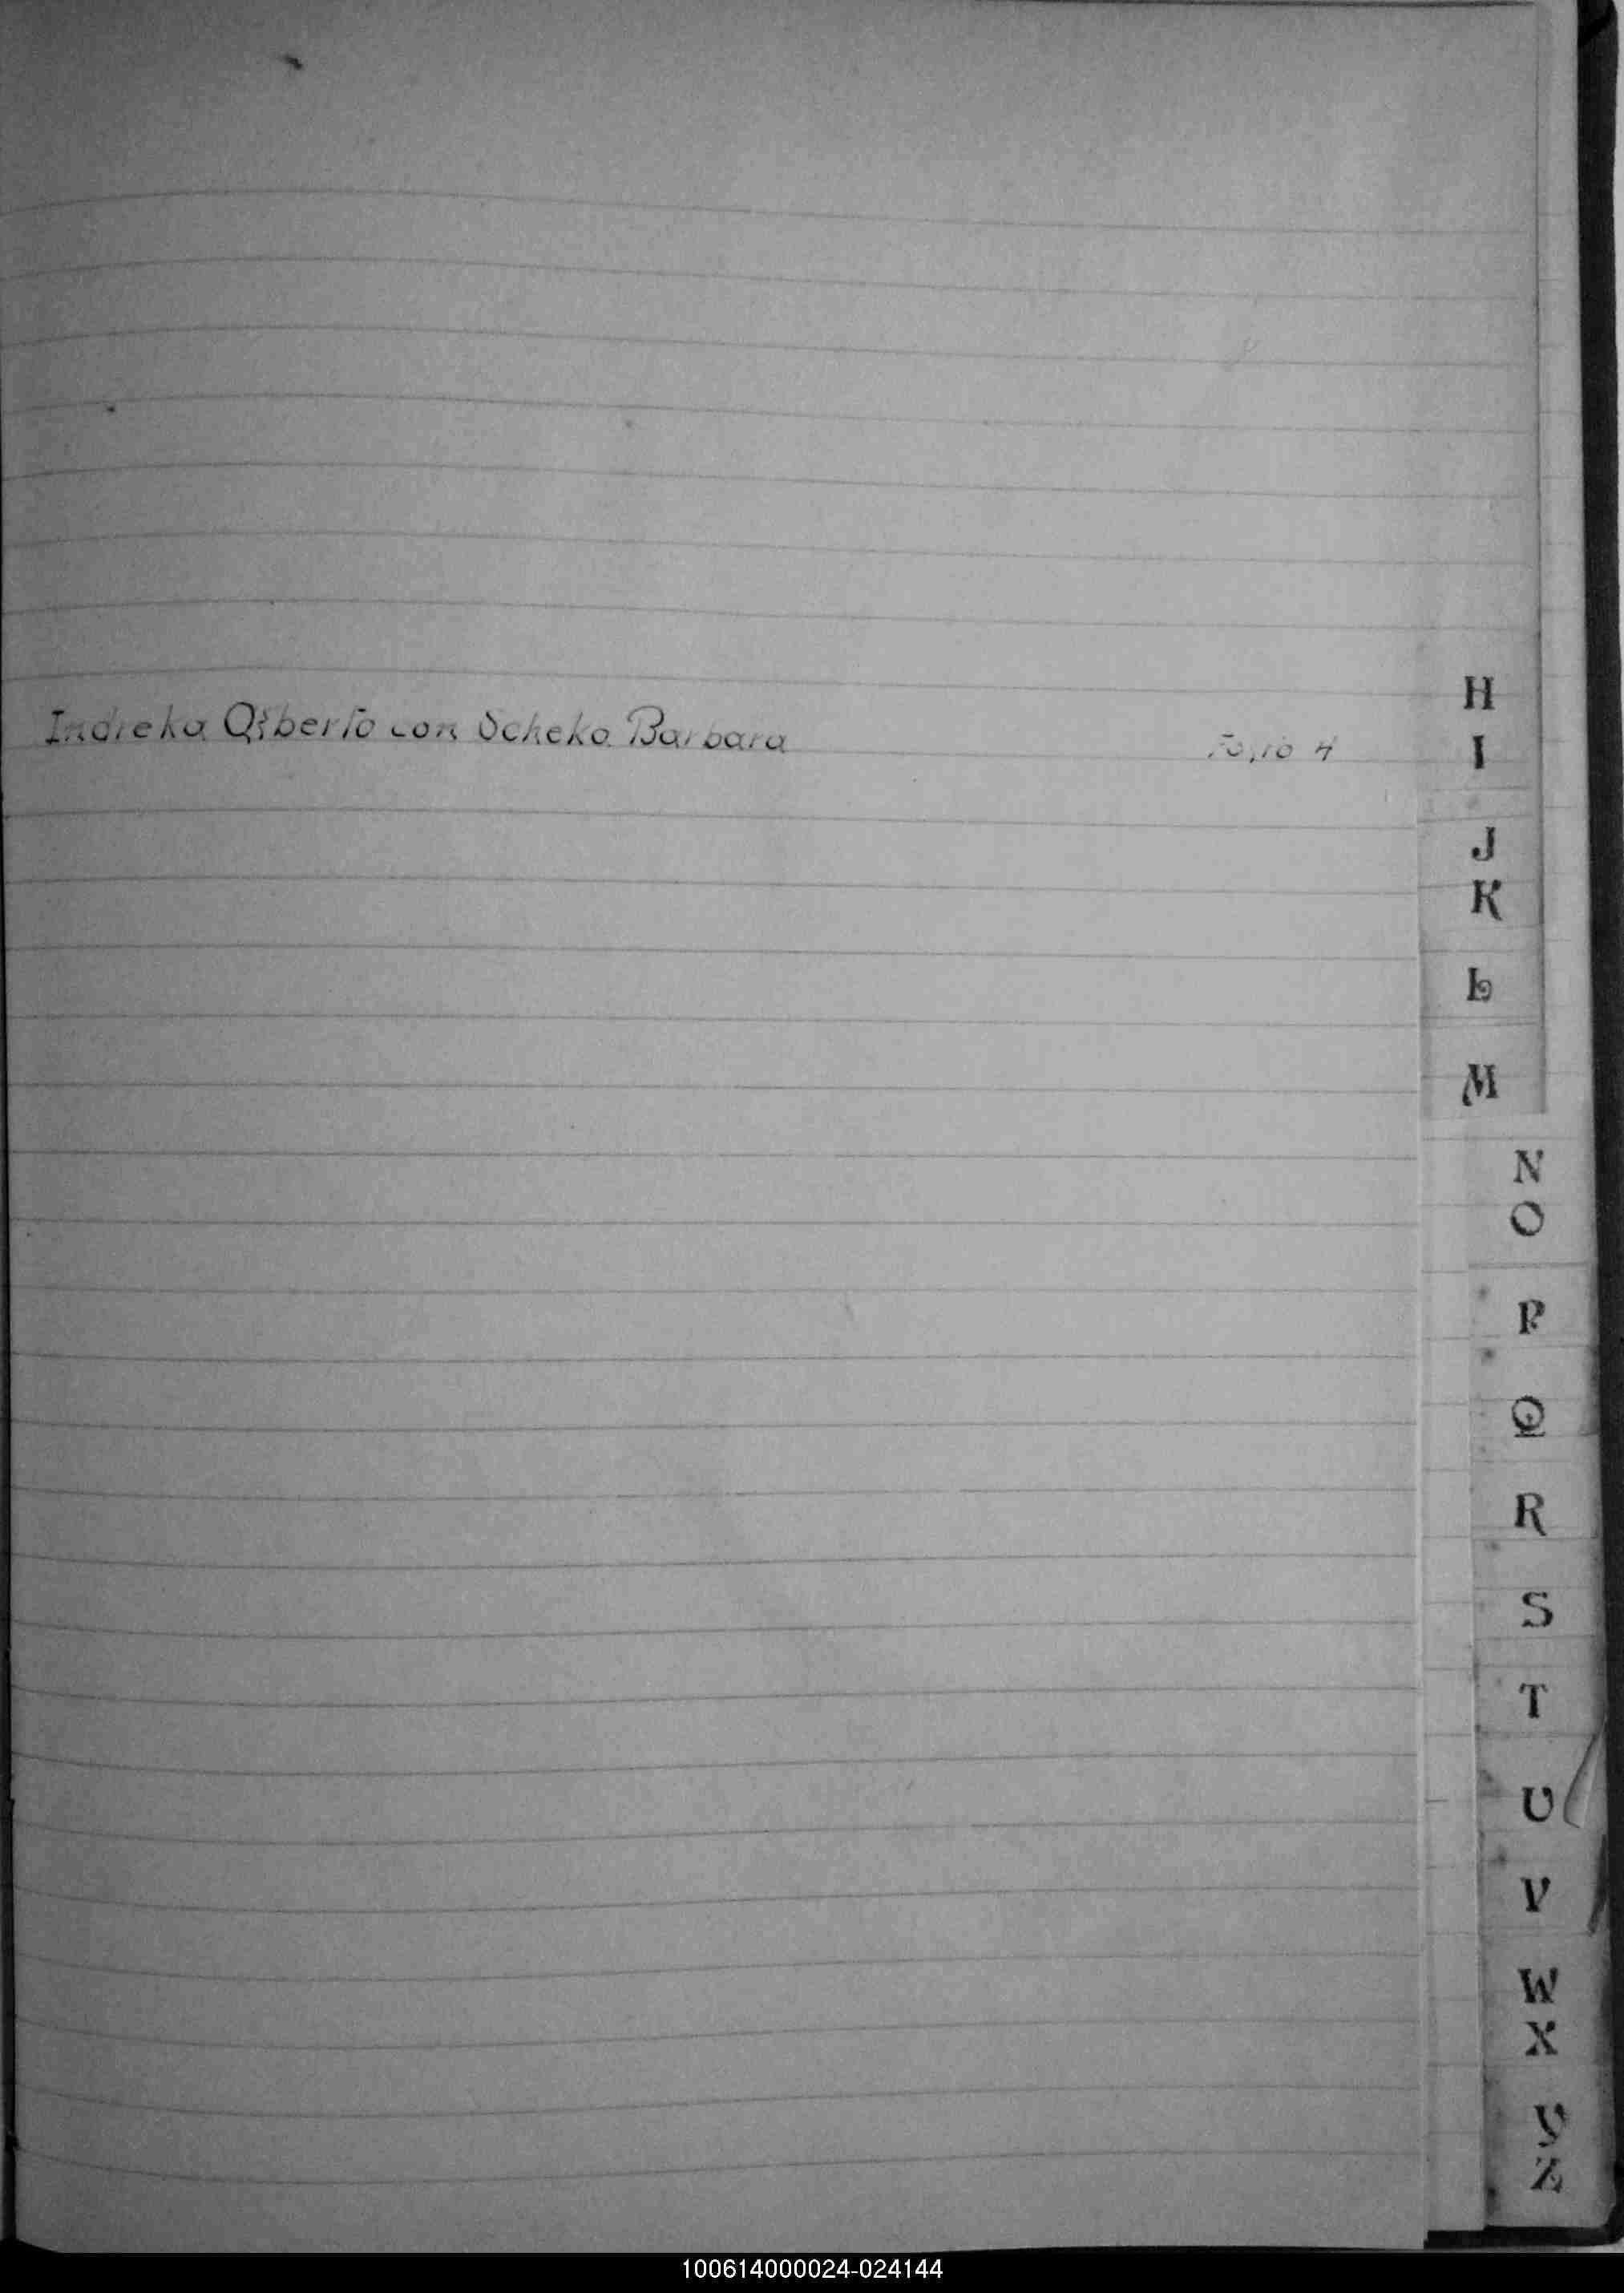 Indreka Qiberto con Scheko Barbara Folio 4
H
I
J
K
L
M
N
O
P
Q
R
S
T
U
V
W
X
Y
Z
100614000024-024144